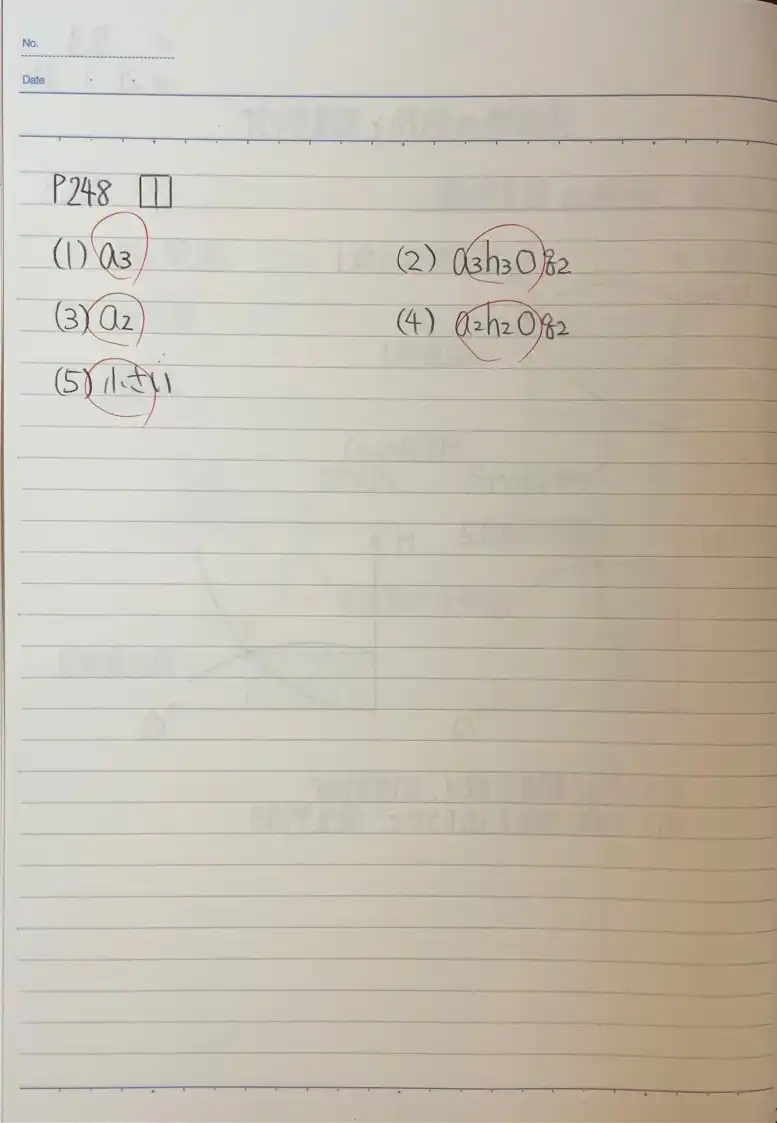 No.
Date
P248 1
(1) a3 (2) a3h30g2
(3) a2 (4) a2h20g2
(5) 小さい